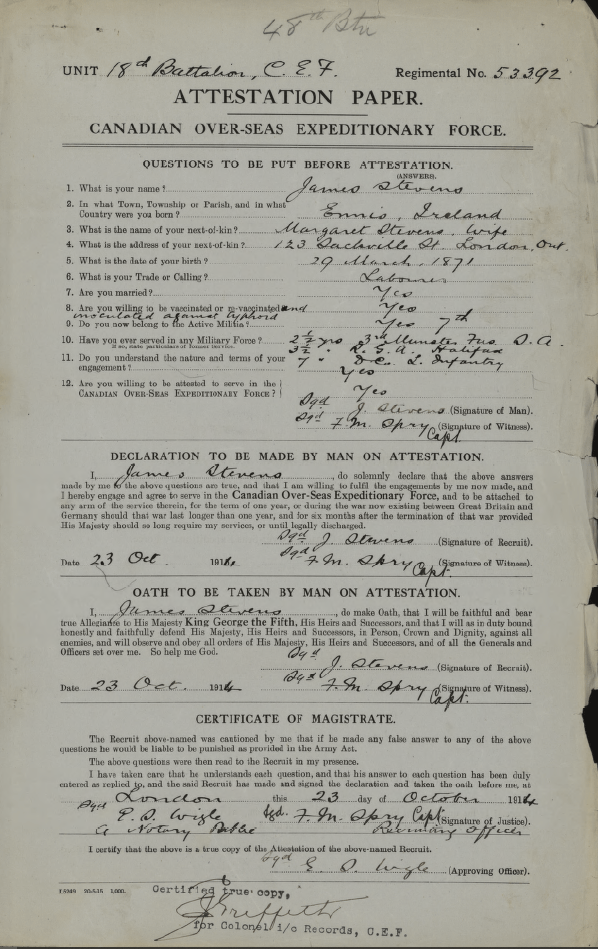 48th Btn
UNIT 18th Battalion, C. E. F. Regimental No. 53392
ATTESTATION PAPER.
CANADIAN OVER-SEAS EXPEDITIONARY FORCE.
QUESTIONS TO BE PUT BEFORE ATTESTATION.
(ANSWERS.
1. What is your name? James Stevens
2. In what Town, Township or Parish, and in what
Country were you born? Ennis, Ireland
3. What is the name of your next-of-kin? Margaret Stevens, Wife
4. What is the address of your next-of-kin? 123 Sackville St. London. Ont.
5. What is the date of your birth? 29 March, 1871
6. What is your Trade or Calling? Labourer
7. Are you married? Yes
8. Are you willing to be vaccinated or re-vaccinated and Yes
inoculated against typhoid
9. Do you now belong to the Active Militia? Yes 7th
10. Have you ever served in any Military Force? 2 1/2 yrs 3rd Munster Fus. S. A.
If so, state particulars of former Service. 3 1/2 " R. G. A. Halifax
11. Do you understand the nature and terms of your 7 " D Co. L. Infantry
engagement? Yes
12. Are you willing to be attested to serve in the
CANADIAN OVER-SEAS EXPEDITIONARY FORCE? Yes
Sgd J. Stevens (Signature of Man).
Sgd F. M. Spry (Signature of Witness).
Capt
DECLARATION TO BE MADE BY MAN ON ATTESTATION.
I, James Stevens, do solemnly declare that the above answers
made by me to the above questions are true, and that I am willing to fulfil the engagements by me now made, and
I hereby engage and agree to serve in the Canadian Over-Seas Expeditionary Force, and to be attached to
any arm of the service therein, for the term of one year, or during the war now existing between Great Britain and
Germany should that war last longer than one year, and for six months after the termination of that war provided
His Majesty should so long require my services, or until legally discharged.
Sgd J. Stevens (Signature of Recruit).
Date 23 Oct 1914. Sgd F. M. Spry (Signature of Witness).
Capt.
OATH TO BE TAKEN BY MAN ON ATTESTATION.
I, James Stevens, do make Oath, that I will be faithful and bear
true Allegiance to His Majesty King George the Fifth, His Heirs and Successors, and that I will as in duty bound
honestly and faithfully defend His Majesty, His Heirs and Successors, in Person, Crown and Dignity, against all
enemies, and will observe and obey all orders of His Majesty, His Heirs and Successors, and of all the Generals and
Officers set over me. So help me God.
Sgd J. Stevens (Signature of Recruit).
Date 23 Oct. 1914 Sgd F. M. Spry (Signature of Witness).
Capt.
CERTIFICATE OF MAGISTRATE.
The Recruit above-named was cautioned by me that if he made any false answer to any of the above
questions he would be liable to be punished as provided in the Army Act.
The above questions were then read to the Recruit in my presence.
I have taken care that he understands each question, and that his answer to each question has been duly
entered as replied to, and the said Recruit has made and signed the declaration and taken the oath before me, at
London this 23 day of October 1914
Sgd E. S. Wigle Sgd. F. M. Spry Capt (Signature of Justice).
A Notary Public Recruiting Officer
I certify that the above is a true copy of the Attestation of the above-named Recruit.
Sgd E. S. Wigle (Approving Officer).
Certified true copy,
J Griffith
for Colonel i/c Records, C.E.F.